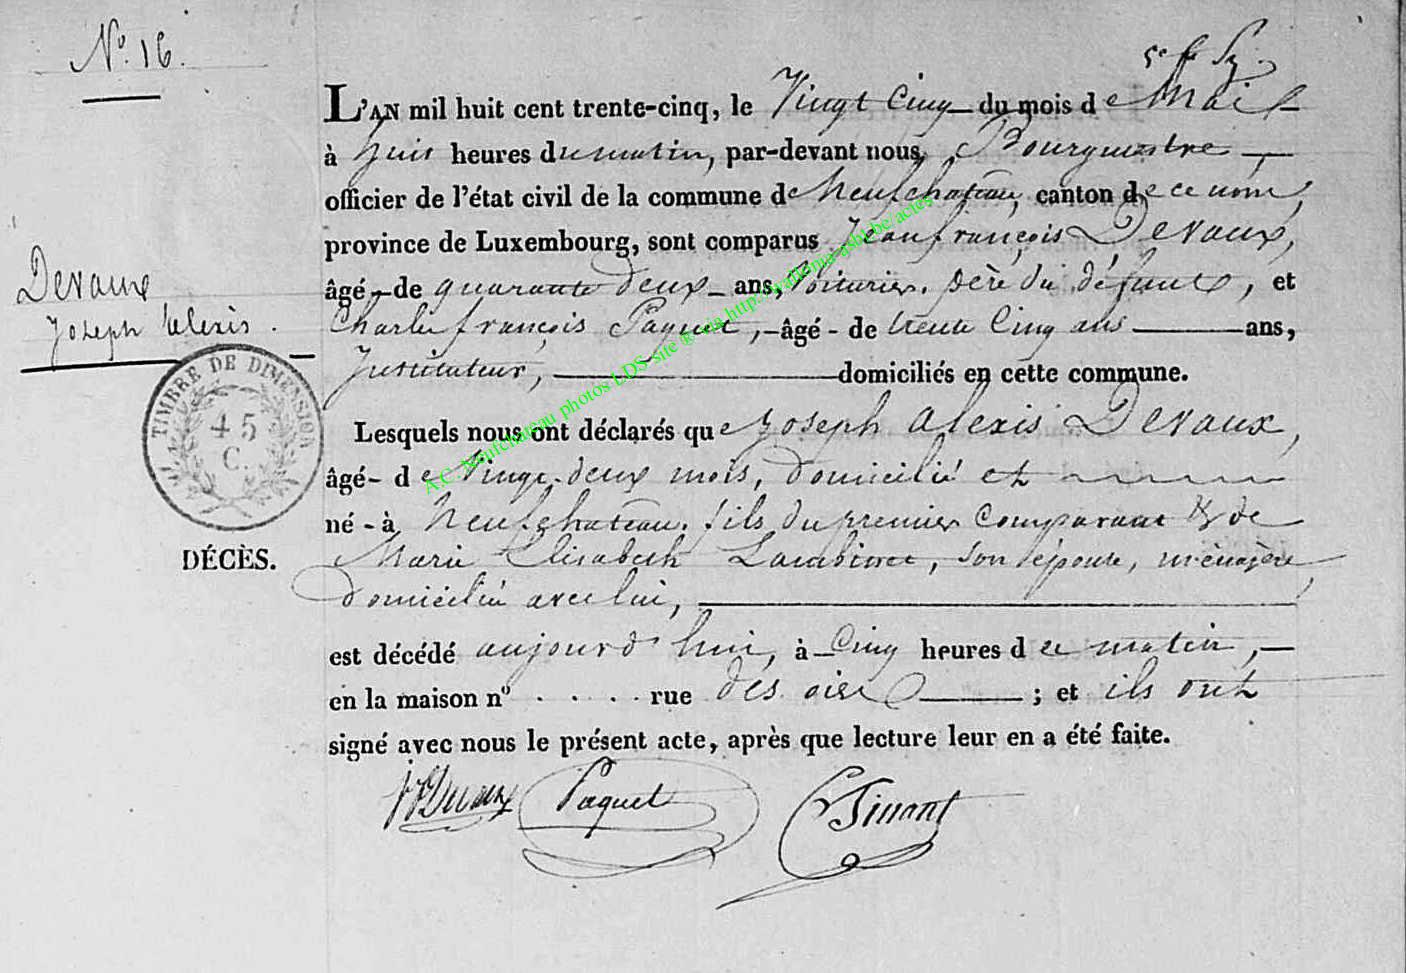 N° 16.
L'AN mil huit cent trente-cinq, le Vingt Cinq du mois de Mai
à huit heures du matin, par-devant nous, Bourgmestre
officier de l'état civil de la commune de Neufchateau, canton de ce nom,
province de Luxembourg, sont comparus Jean françois Devaux,
âgé - de quarante deux - ans, Voiturier, père du défunt, et
Charles françois Paquet, - âgé - de trente Cinq ans ans,
Instituteur, domiciliés en cette commune.
Devaux
Joseph Alexis.
TIMBRE DE DIMENSION
45
C.
DÉCÈS.
Lesquels nous ont déclarés que Joseph Alexis Devaux,
âgé - de Vingt-deux mois, domicilié et
né - à Neufchateau, fils du premier Comparant & de
Marie Elisabeth Lambinet, son épouse, ménagère
domicilié avec lui,
est décédé aujourd'hui, à Cinq heures de ce matin,
en la maison n° . . . . rue des oies ; et ils ont
signé avec nous le présent acte, après que lecture leur en a été faite.
JF Devaux Paquet
A.C. Neufchateau photos LDS-site ® via http://wallonia-asbl.be/actes